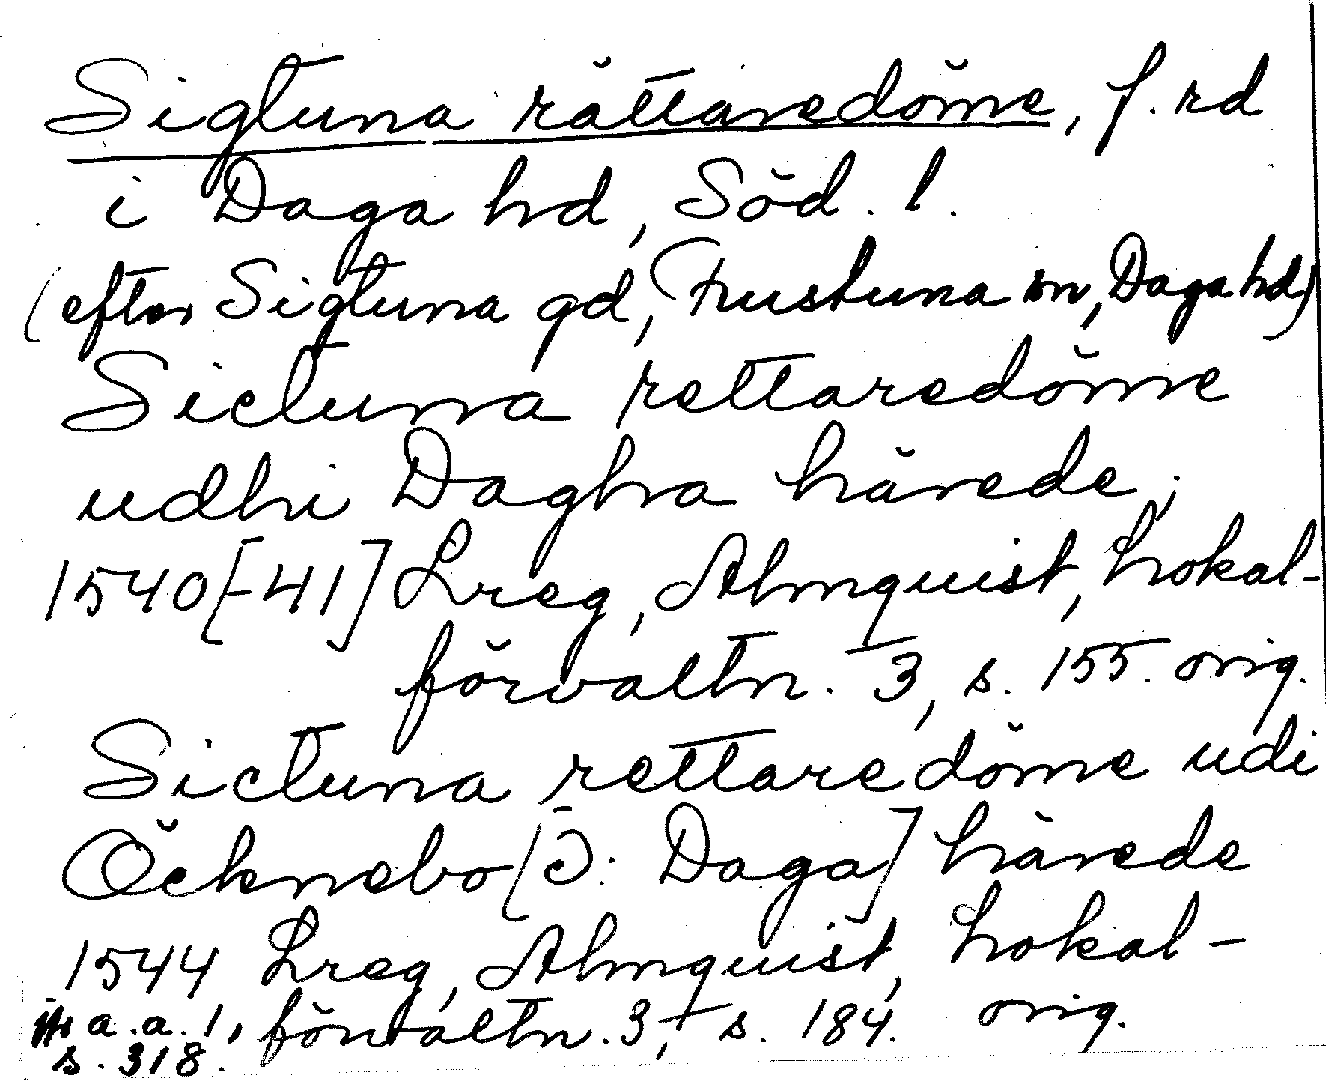 Sigtuna rättaredöme, f. rd
i Daga hd, Söd. l.
(efter Sigtuna gd, Frustuna sn, Daga hd)
Sictuna rettaredöme
udhi Dagha härede,
1540[-41] Lreg, Almquist, Lokal-
förvaltn. 3, s. 155. orig.
Sictuna rettaredöme udi
Öcknebo [ɔ: Daga] härede
1544 Lreg, Almquist, Lokal-
förvaltn. 3, s. 184. orig.
a. a. 1,
s. 318.